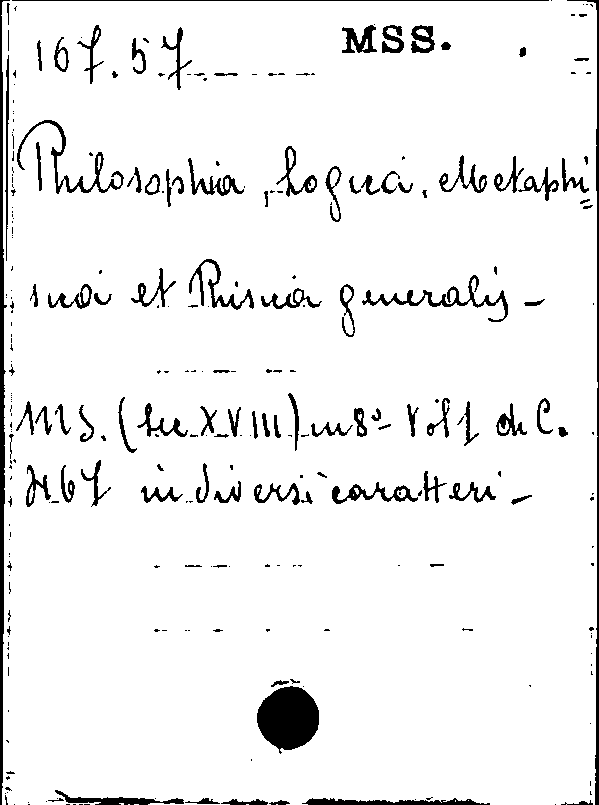 167.57 MSS.
Philosophia, Logica, Metaphi=
sica et Phisica generalis –
MS. (Sec XVIII) in 8º Vol 1 di C.
467 in diversi caratteri –